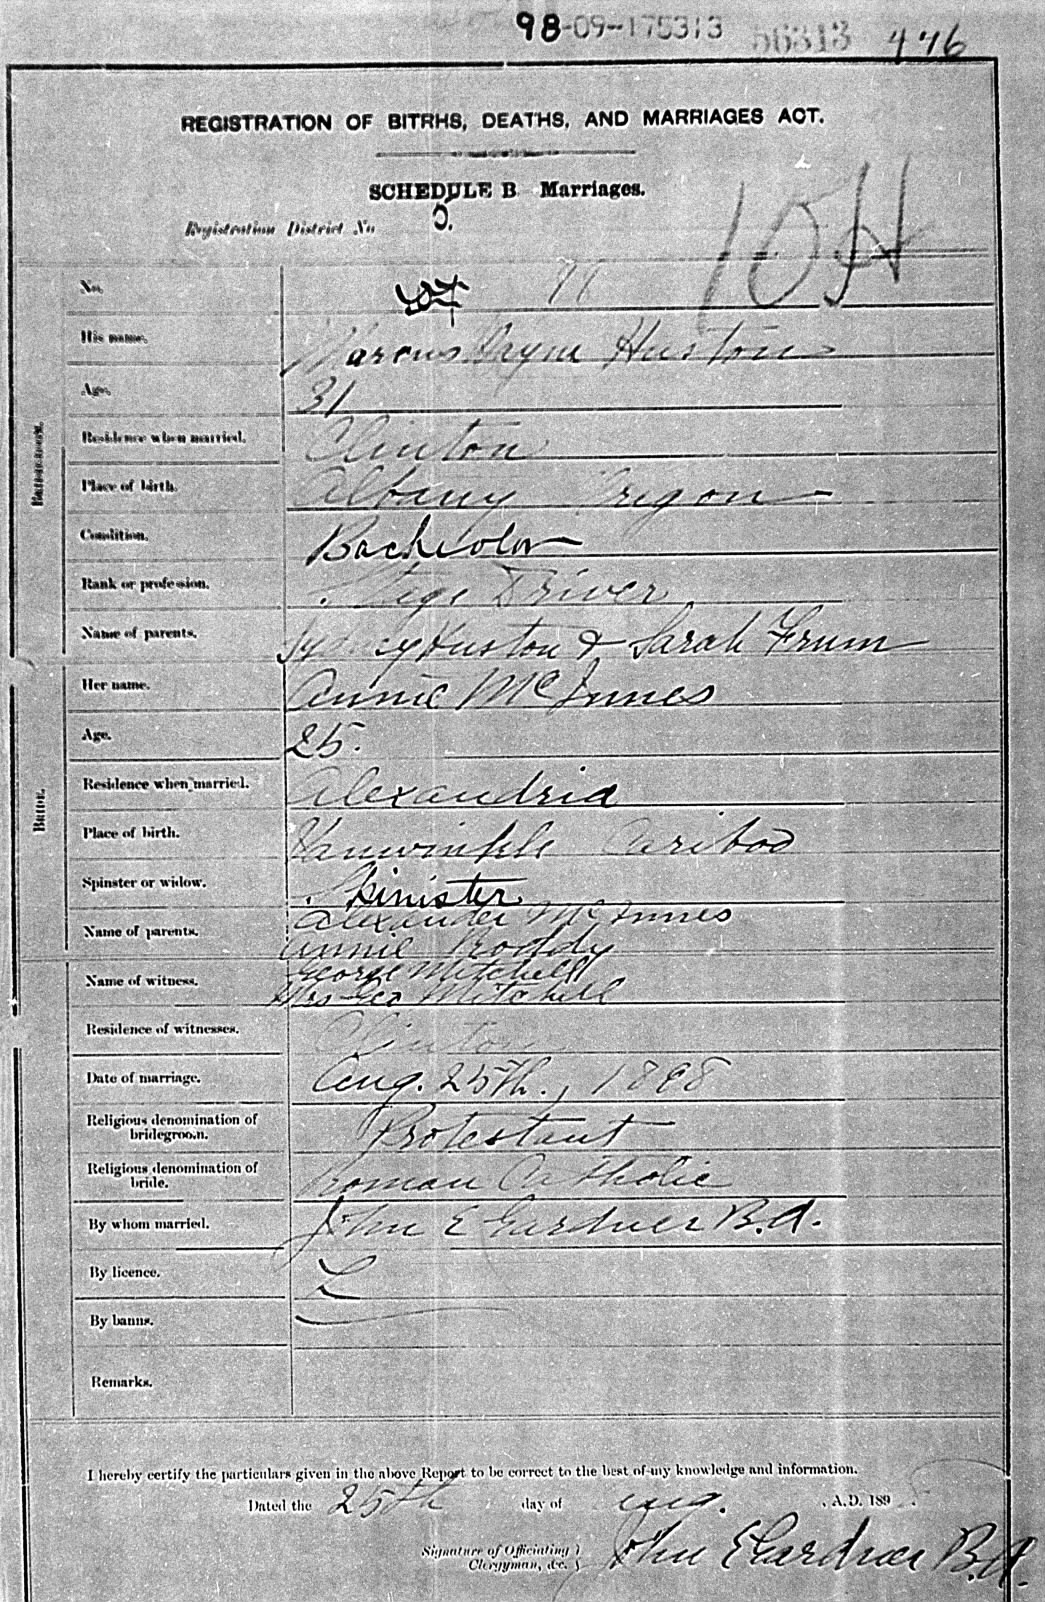 98-09-175313 56313 446
REGISTRATION OF BITRHS, DEATHS, AND MARRIAGES ACT.
SCHEDULE B Marriages.
Registration District No 5.
No. 98
His name. Marcus Huston
Age. 31
Residence when married. Clinton
Place of birth. Albany Oregon
Condition. Bachelor
Rank or profession. Stage Driver
Name of parents. Huston & Sarah Frum
BRIDEGROOM.
Her name. Annie McInnes
Age. 25.
Residence when married. Alexandria
Place of birth. Vanwinkle Cariboo
Spinster or widow. Spinister
Name of parents. Alexander McInnes
Annie Roddy
BRIDE.
Name of witness. George Mitchell
Mrs Geo Mitchell
Residence of witnesses. Clinton
Date of marriage. Aug. 25th., 1898
Religious denomination of
bridegroom. Protestant
Religious denomination of
bride. Roman Catholic
By whom married. John E Gardner B.A.
By licence. L
By banns.
Remarks.
I hereby certify the particulars given in the above Report to be correct to the best of my knowledge and information.
Dated the 25th day of Aug. , A.D. 1898
Signature of Officiating }
Clergyman, &c. } John E Gardner B.A.